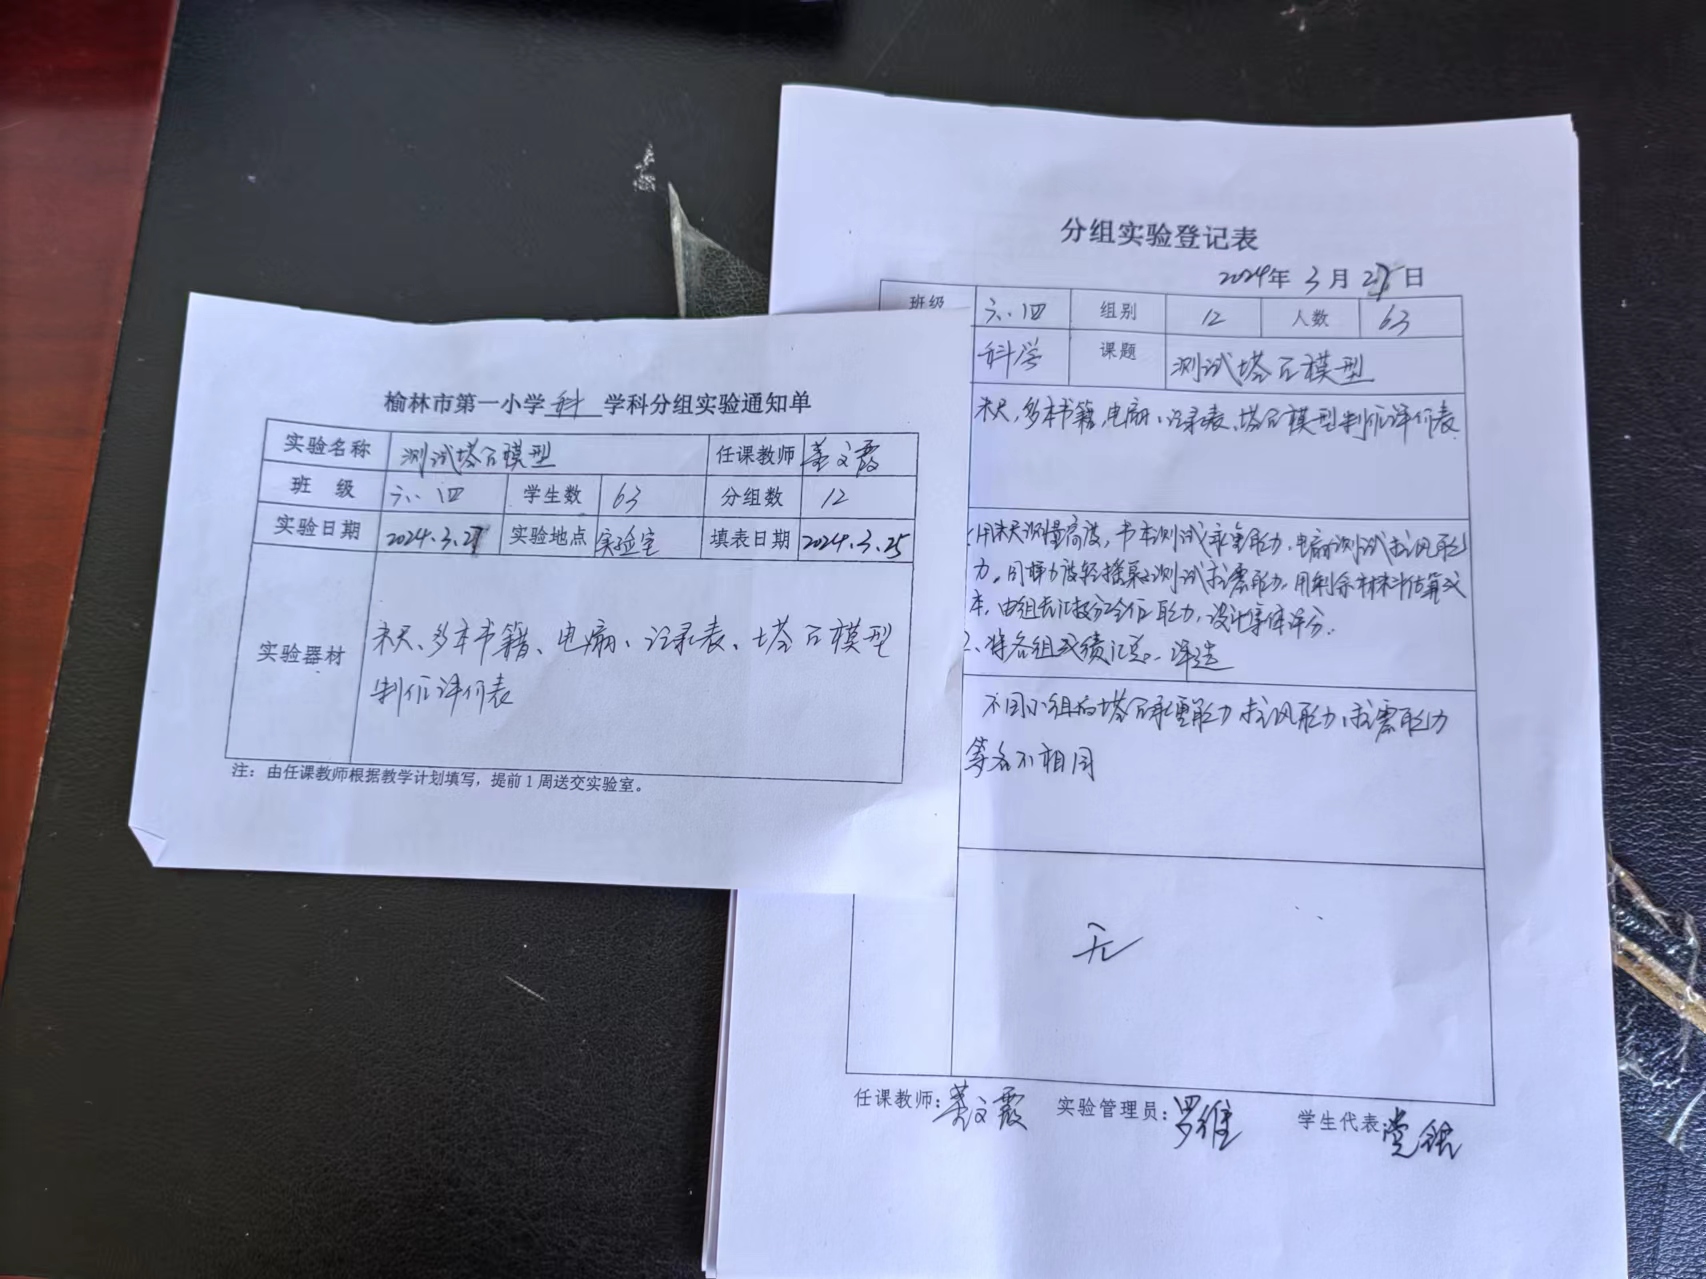 榆林市第一小学 科 学科分组实验通知单
实验名称 测试塔台模型 任课教师 姜文霞
班 级 六.四 学生数 63 分组数 12
实验日期 2024.3.27 实验地点 实验室 填表日期 2024.3.25
实验器材 米尺、多本书籍、电扇、记录表、塔台模型
制作评价表
注：由任课教师根据教学计划填写，提前1周送交实验室。
分组实验登记表
2024年 3 月 日
班级 六.四 组别 12 人数 63
科学 课题 测试塔台模型
米尺,多本书籍,电扇、记录表、塔台模型制作评价表
用米尺测量高度,书本测试承重能力,电扇测试抗风能
力,同样力度轻摇桌子测试抗震能力,用剩余材料估算成
本,由组长汇报 能力,设计 评分.
2、将各组成绩汇总、评选
不同小组的塔台承重能力 抗风能力、抗震能力
等各不相同
无
任课教师: 姜文霞 实验管理员: 罗维 学生代表